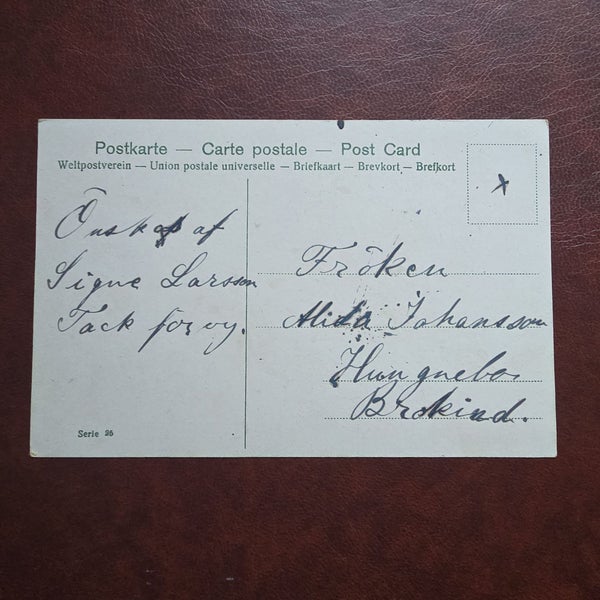 Postkarte — Carte postale — Post Card
Weltpostverein — Union postale universelle — Briefkaart — Brevkort — Brefkort
Önskas af
Signe Larsson
Tack för vy.
Fröken
Alida Johansson
Brokind.
Serie 26